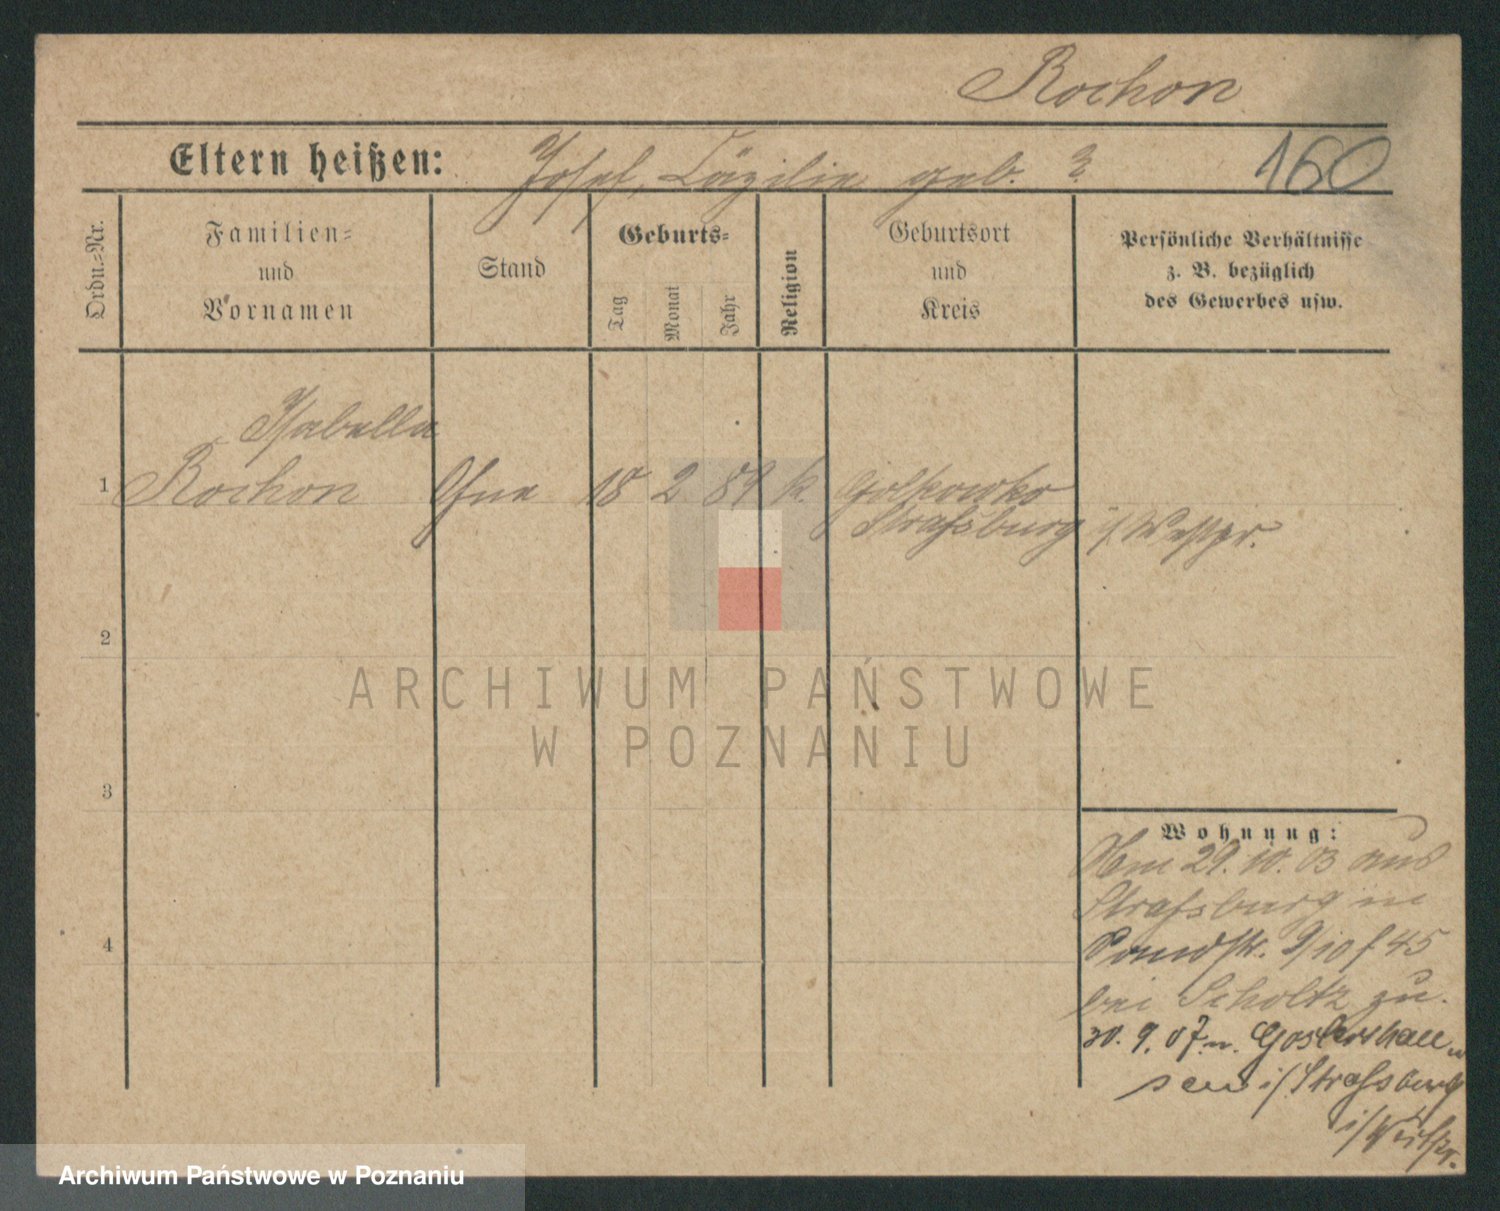 Rochon
Eltern heißen: Josef, Cäzilie geb. ?
160
Ordn.-Nr.
Familien-
und
Vornamen
Stand
Geburts-
Tag
Monat
Jahr
Religion
Geburtsort
und
Kreis
Persönliche Verhältnisse
z. B. bezüglich
des Gewerbes usw.
Isabella
1 Rochon Ohne 18 2 89 k.
Strafsburg i/Westpr.
2
ARCHIWUM PAŃSTWOWE
W POZNANIU
3
Wohnung:
29.10.03 aus
Strafsburg in
9/10 f 45
bei Scholtz zu.
30. 9. 07. n. Goslershau
sen i/Strafsburg
i/Westpr.
4
Archiwum Państwowe w Poznaniu